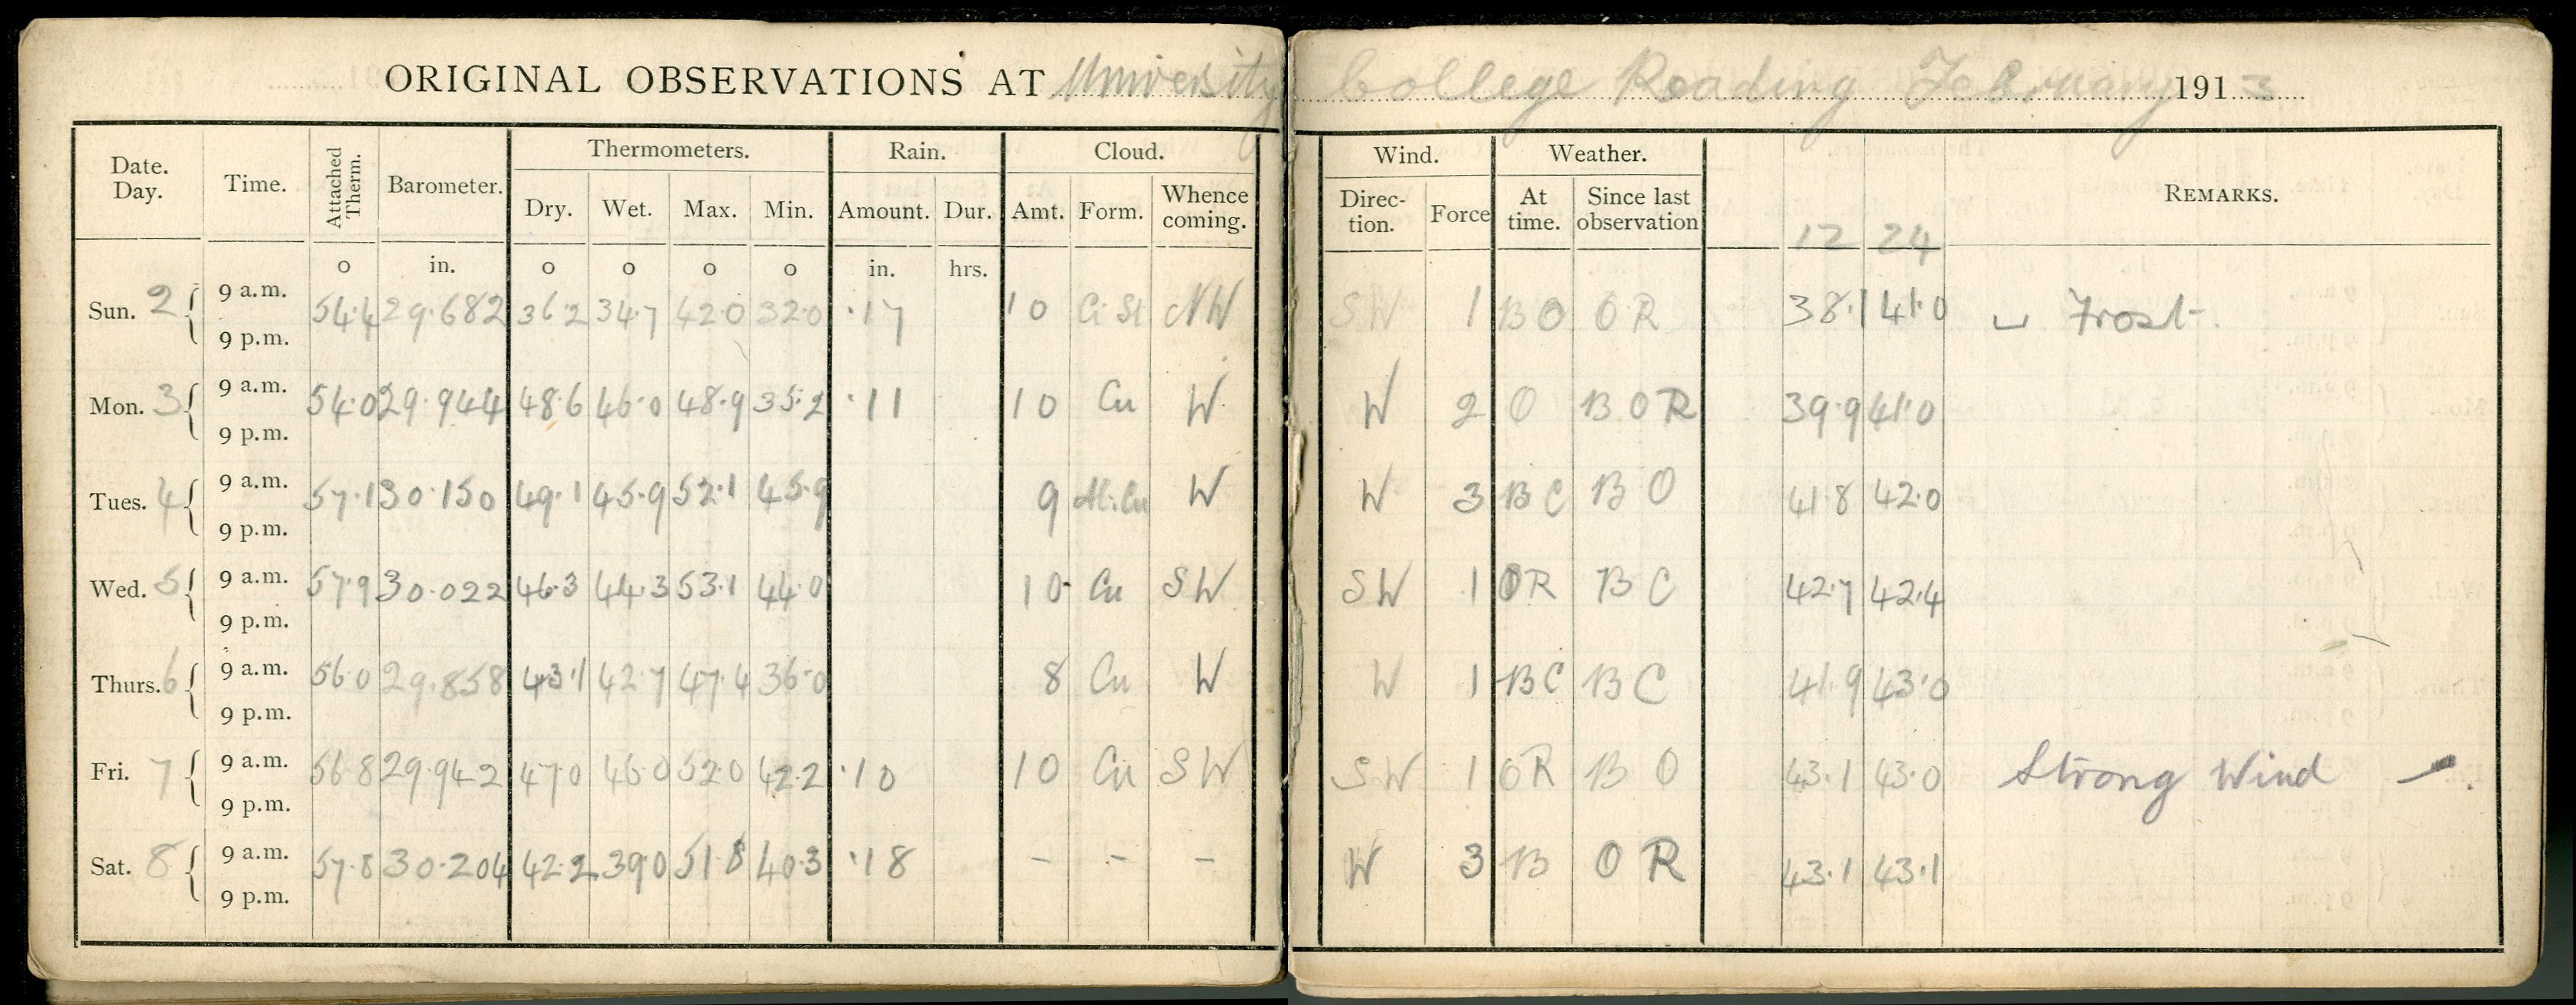 ORIGINAL OBSERVATIONS AT University College Reading February 1913
Date. Day. Time. Attached Therm. Barometer. Thermometers. Rain. Cloud. Wind. Weather. REMARKS.
Dry. Wet. Max. Min. Amount. Dur. Amt. Form. Whence coming. Direc- tion. Force At time. Since last observation 12 24
o in. o o o o in. hrs.
Sun. 2 9 a.m. 9 p.m. 54.4 29.682 36.2 34.7 42.0 32.0 .17 10 Ci St NW SW 1 B O O R 38.1 41.0 ⌴ Frost.
Mon. 3 9 a.m. 9 p.m. 54.0 29.944 48.6 46.0 48.9 35.2 .11 10 Cu W W 2 O B O R 39.9 41.0
Tues. 4 9 a.m. 9 p.m. 57.1 30.150 49.1 45.9 52.1 45.9 9 Al.Cu W W 3 B C B O 41.8 42.0
Wed. 5 9 a.m. 9 p.m. 57.9 30.022 46.3 44.3 53.1 44.0 10 Cu SW SW 1 O R B C 42.7 42.4
Thurs. 6 9 a.m. 9 p.m. 56.0 29.858 43.1 42.7 47.4 36.0 8 Cu W W 1 B C B C 41.9 43.0
Fri. 7 9 a.m. 9 p.m. 56.8 29.942 47.0 46.0 52.0 42.2 .10 10 Cu SW SW 1 O R B O 43.1 43.0 Strong Wind
Sat. 8 9 a.m. 9 p.m. 57.8 30.204 42.2 39.0 51.8 40.3 .18 – – – W 3 B O R 43.1 43.1